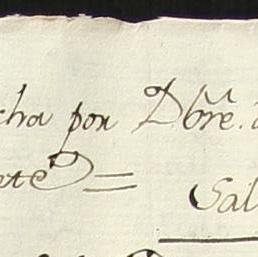 cha por Dbre.
ete =
Sal